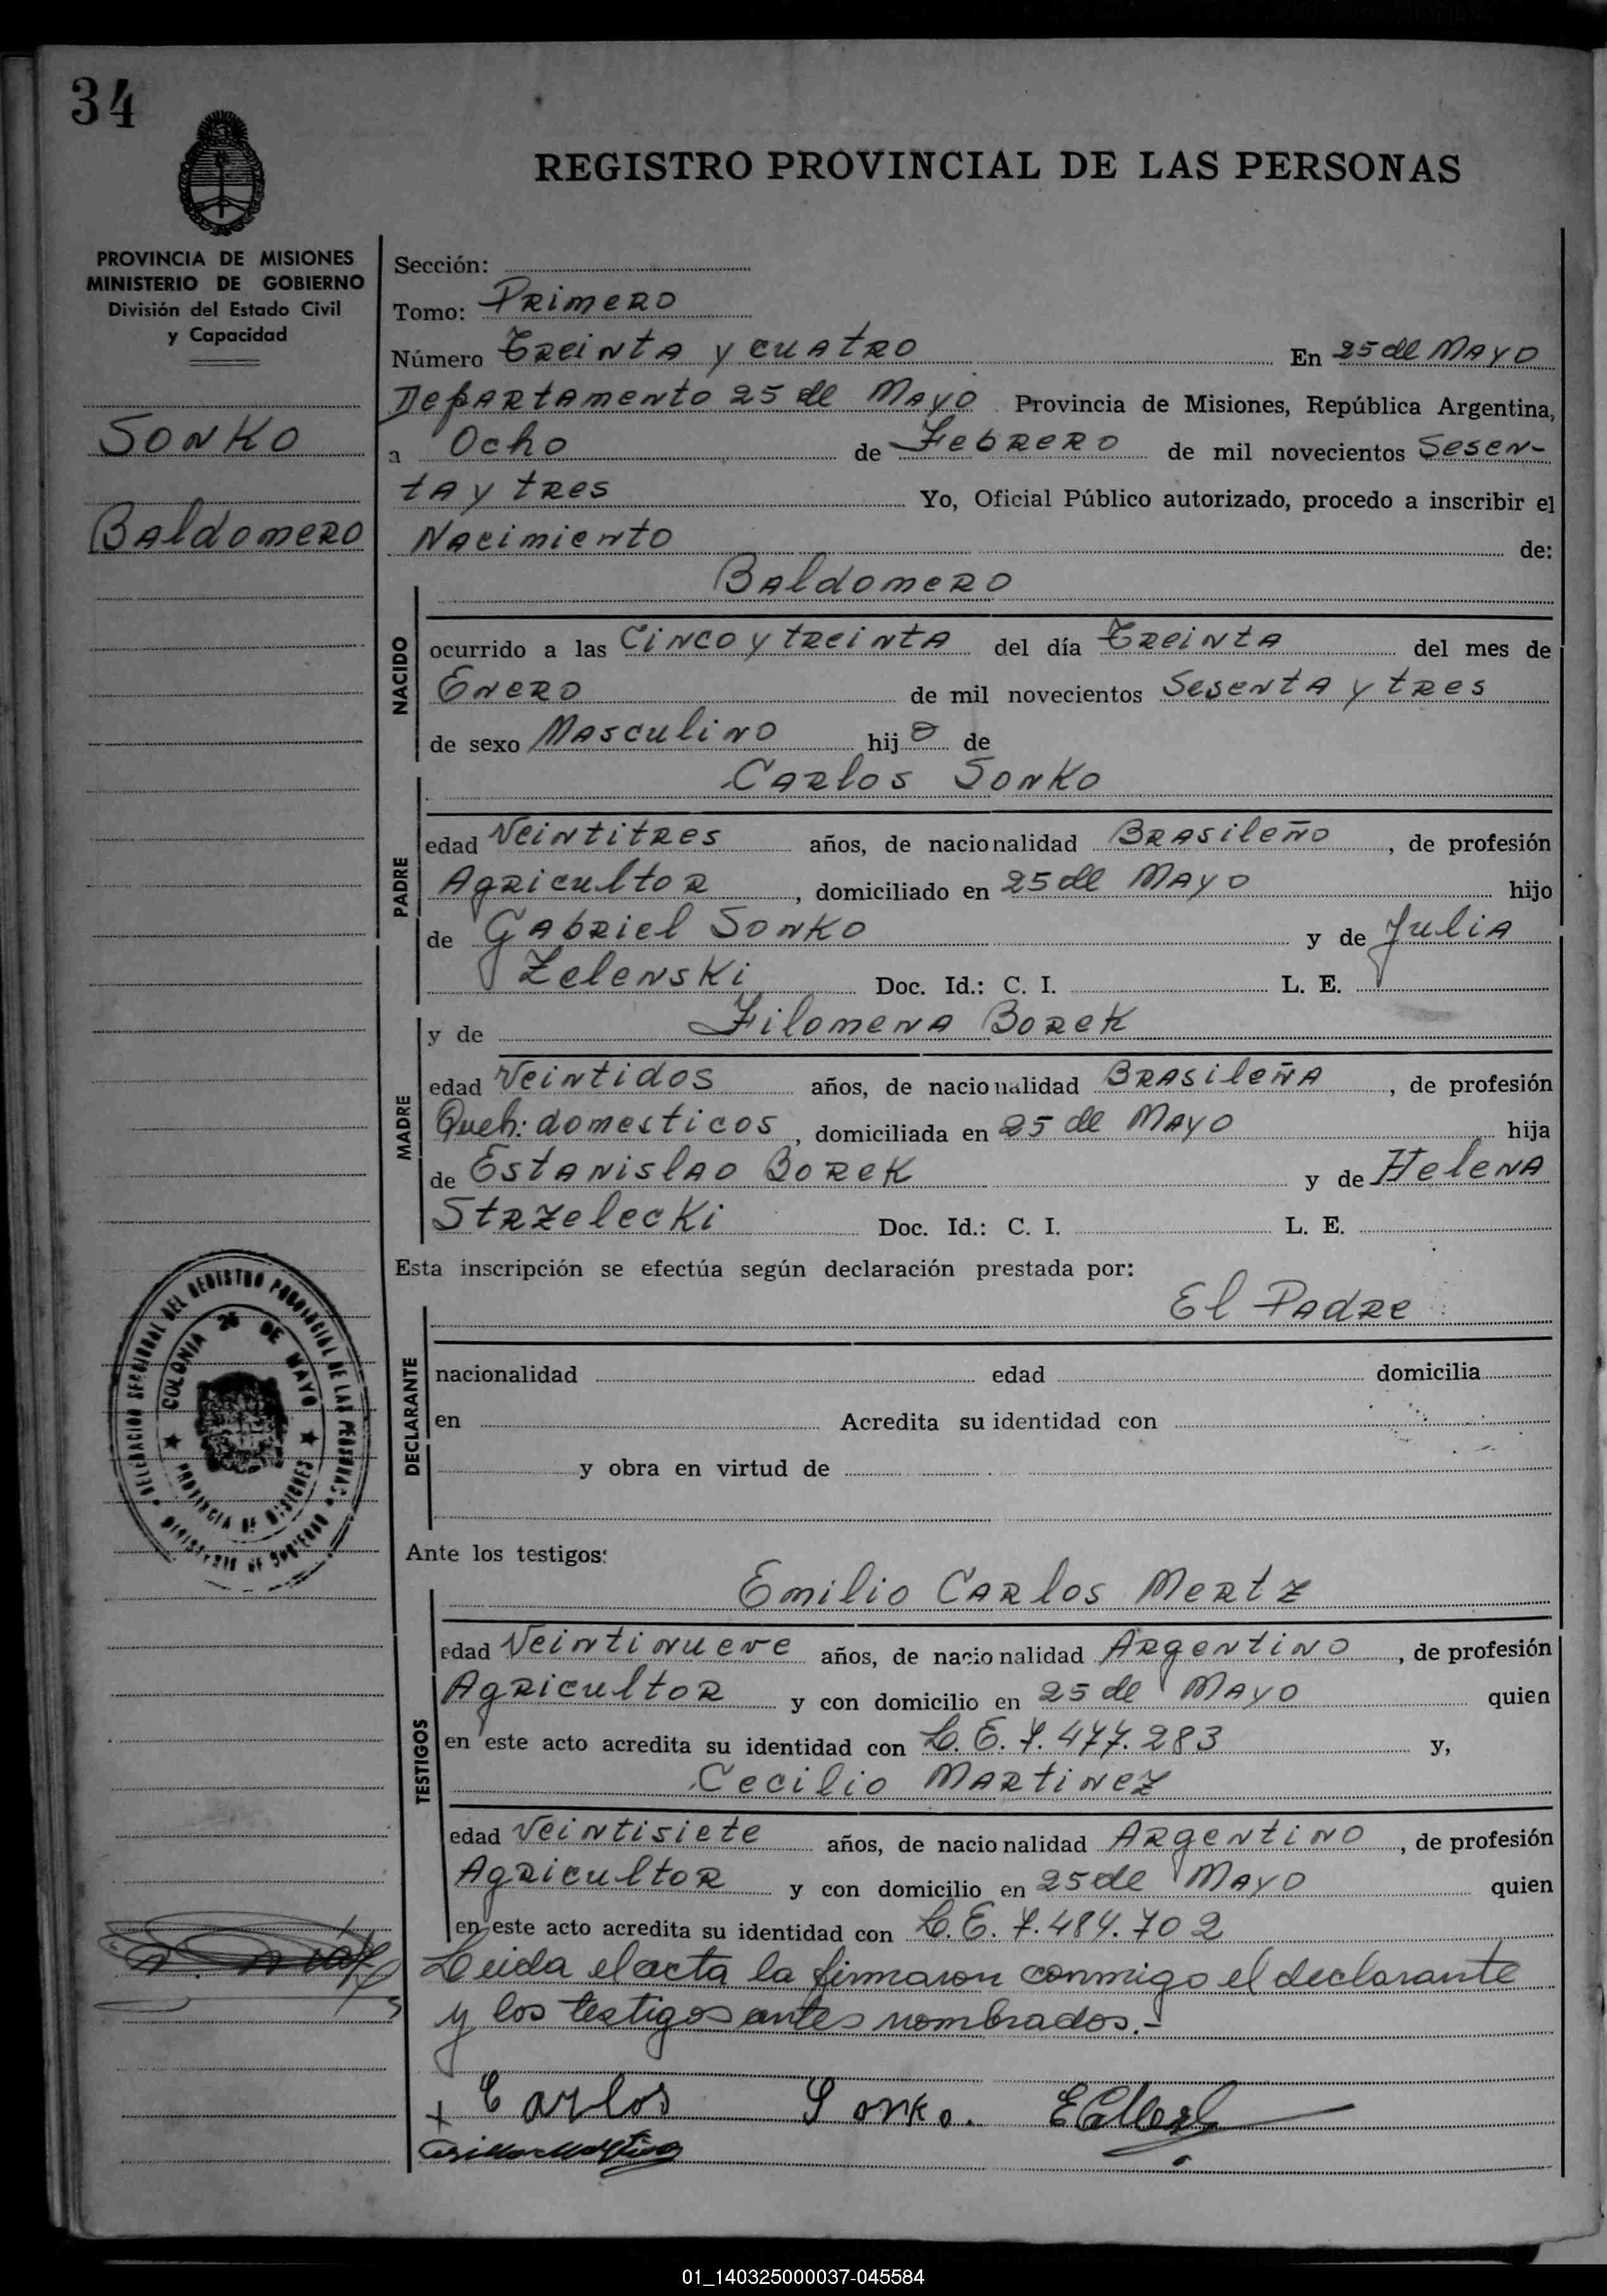 34
REGISTRO PROVINCIAL DE LAS PERSONAS
PROVINCIA DE MISIONES
MINISTERIO DE GOBIERNO
División del Estado Civil
y Capacidad
SONKO
Baldomero
Sección:
Tomo: Primero
Número Treinta y cuatro En 25 de Mayo
Departamento 25 de Mayo Provincia de Misiones, República Argentina,
a Ocho de Febrero de mil novecientos Sesen-
ta y tres Yo, Oficial Público autorizado, procedo a inscribir el
Nacimiento de:
Baldomero
NACIDO
ocurrido a las Cinco y treinta del día Treinta del mes de
Enero de mil novecientos Sesenta y tres
de sexo Masculino hijo de
Carlos Sonko
PADRE
edad Veintitres años, de nacionalidad Brasileño, de profesión
Agricultor, domiciliado en 25 de Mayo hijo
de Gabriel Sonko y de Julia
Zelenski Doc. Id.: C. I. L. E.
MADRE
y de Filomena Borek
edad Veintidos años, de nacionalidad Brasileña, de profesión
Queh: domesticos, domiciliada en 25 de Mayo hija
de Estanislao Borek y de Helena
Strzelecki Doc. Id.: C. I. L. E.
Esta inscripción se efectúa según declaración prestada por:
El Padre
DECLARANTE
nacionalidad edad domicilia
en Acredita su identidad con
y obra en virtud de
DELEGACION SECCIONAL DEL REGISTRO PROVINCIAL DE LAS PERSONAS
COLONIA 25 DE MAYO
PROVINCIA DE MISIONES
MINISTERIO DE GOBIERNO
Ante los testigos:
TESTIGOS
Emilio Carlos Mertz
edad Veintinueve años, de nacionalidad Argentino, de profesión
Agricultor y con domicilio en 25 de Mayo quien
en este acto acredita su identidad con L. E. 7.477.283 y,
Cecilio Martinez
edad Veintisiete años, de nacionalidad Argentino, de profesión
Agricultor y con domicilio en 25 de Mayo quien
en este acto acredita su identidad con L. E. 7.484.702
Leida el acta la firmaron conmigo el declarante
y los testigos antes nombrados.-
+ Carlos Sonko.
01_140325000037-045584